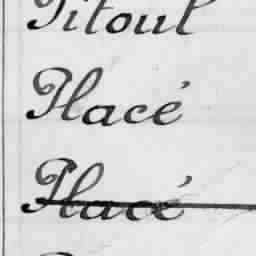 Pitoul
Placé
Placé